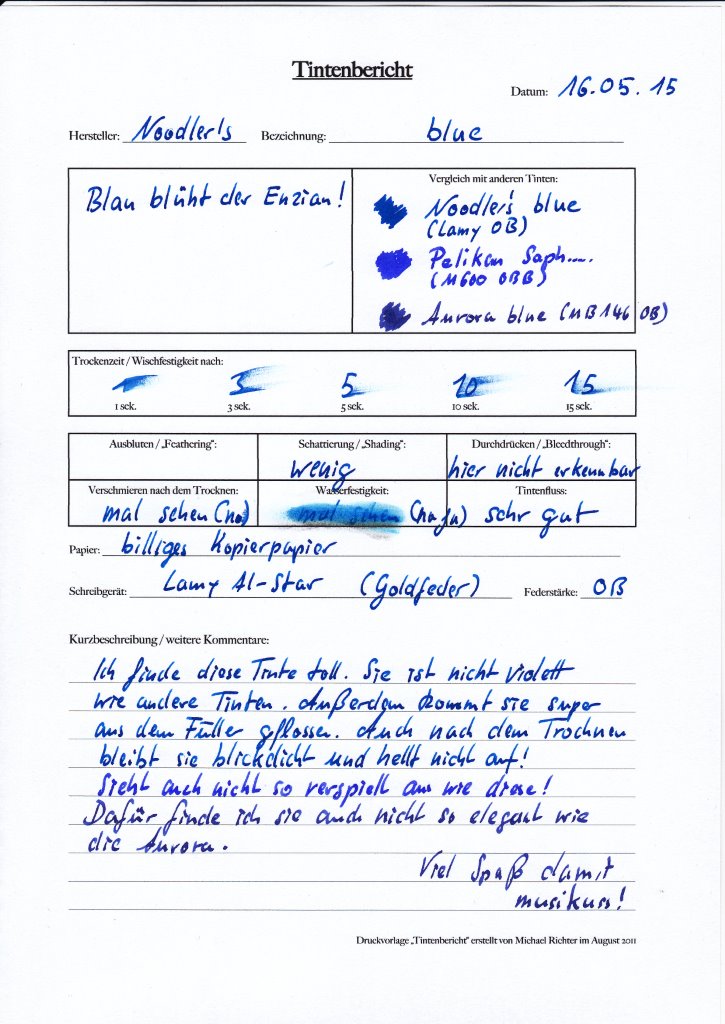 Tintenbericht
Datum: 16.05.15
Hersteller: Noodler's Bezeichnung: blue
Blau blüht der Enzian!
Vergleich mit anderen Tinten:
Noodler's blue
(Lamy OB)
Pelikan Saph.....
(M600 OBB)
Aurora blue (MB146 OB)
Trockenzeit / Wischfestigkeit nach:
1 3 5 10 15
1 sek. 3 sek. 5 sek. 10 sek. 15 sek.
Ausbluten / „Feathering": Schattierung / „Shading": Durchdrücken / „Bleedthrough":
wenig hier nicht erkennbar
Verschmieren nach dem Trocknen: Wasserfestigkeit: Tintenfluss:
mal sehen (no) mal sehen (naja) sehr gut
Papier: billiges Kopierpapier
Schreibgerät: Lamy Al-Star (Goldfeder) Federstärke: OB
Kurzbeschreibung / weitere Kommentare:
Ich finde diese Tinte toll. Sie ist nicht violett
wie andere Tinten. Außerdem kommt sie super
aus dem Füller gflossen. Auch nach dem Trocknen
bleibt sie blickdicht und hellt nicht auf!
Sieht auch nicht so verspielt aus wie diese!
Dafür finde ich sie auch nicht so elegant wie
die Aurora.
Viel Spaß damit
musikuss!
Druckvorlage „Tintenbericht" erstellt von Michael Richter im August 2011